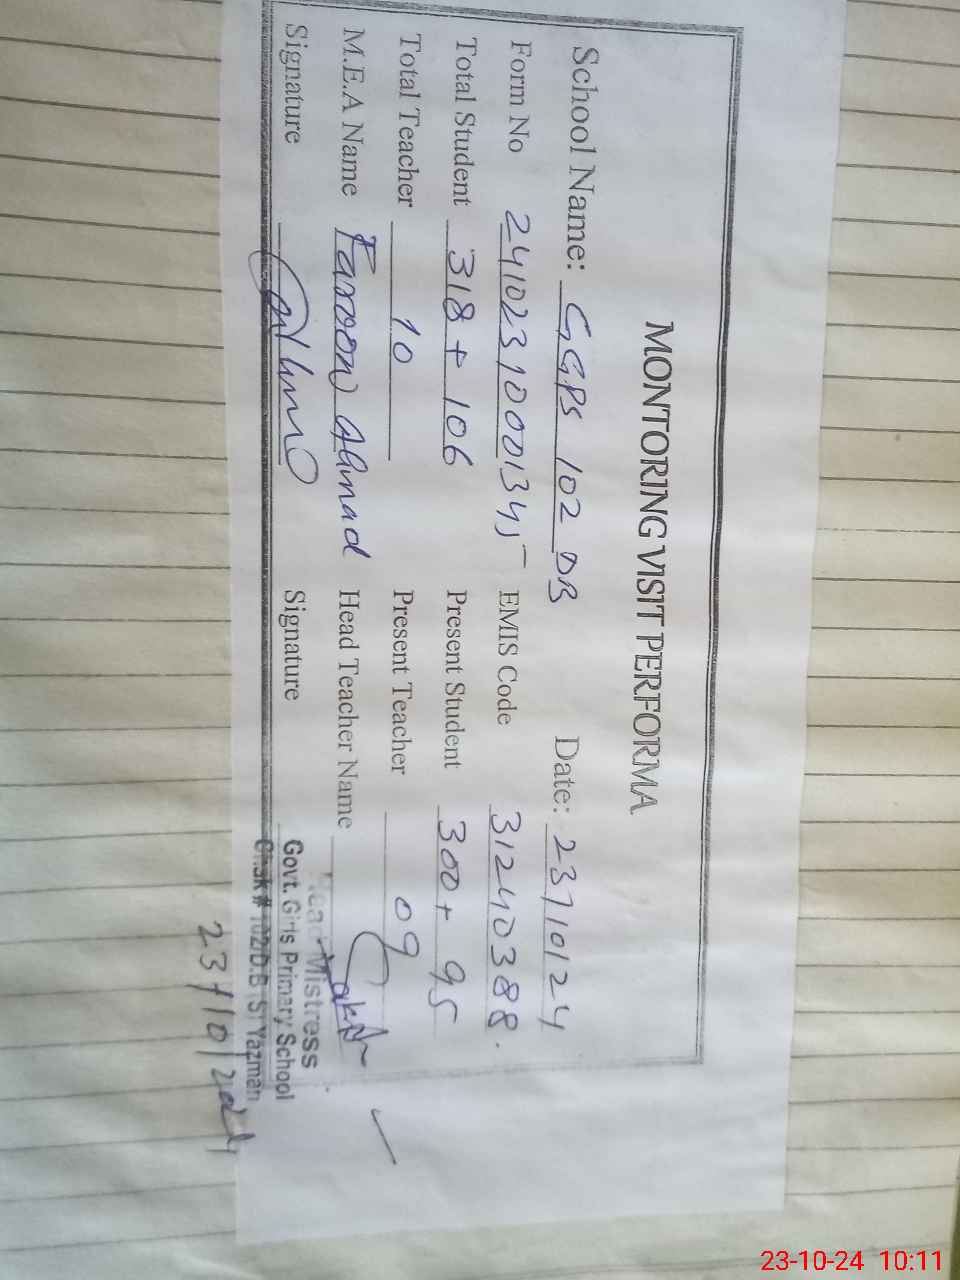 MONTORING VISIT PERFORMA
School Name: GGPS 102 DB Date: 23/10/24
Form No 24102310001345 EMIS Code 31240388.
Total Student 318 + 106 Present Student 300 + 95
Total Teacher 10 Present Teacher 09
M.E.A Name Faroon Ahmad Head Teacher Name
Signature Signature
Head Mistress
Govt. Girls Primary School
Chak # 102/D.B Yazman
23/10/2024
23-10-24 10:11